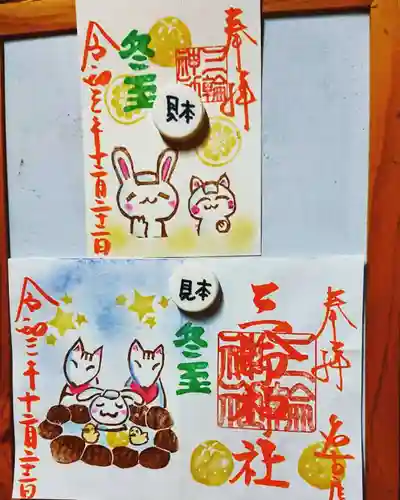 奉拝
三輪神社
冬至
見本
令和三年十二月二十二日
奉拝
名古屋
三輪神社
見本
冬至
令和三年十二月二十二日